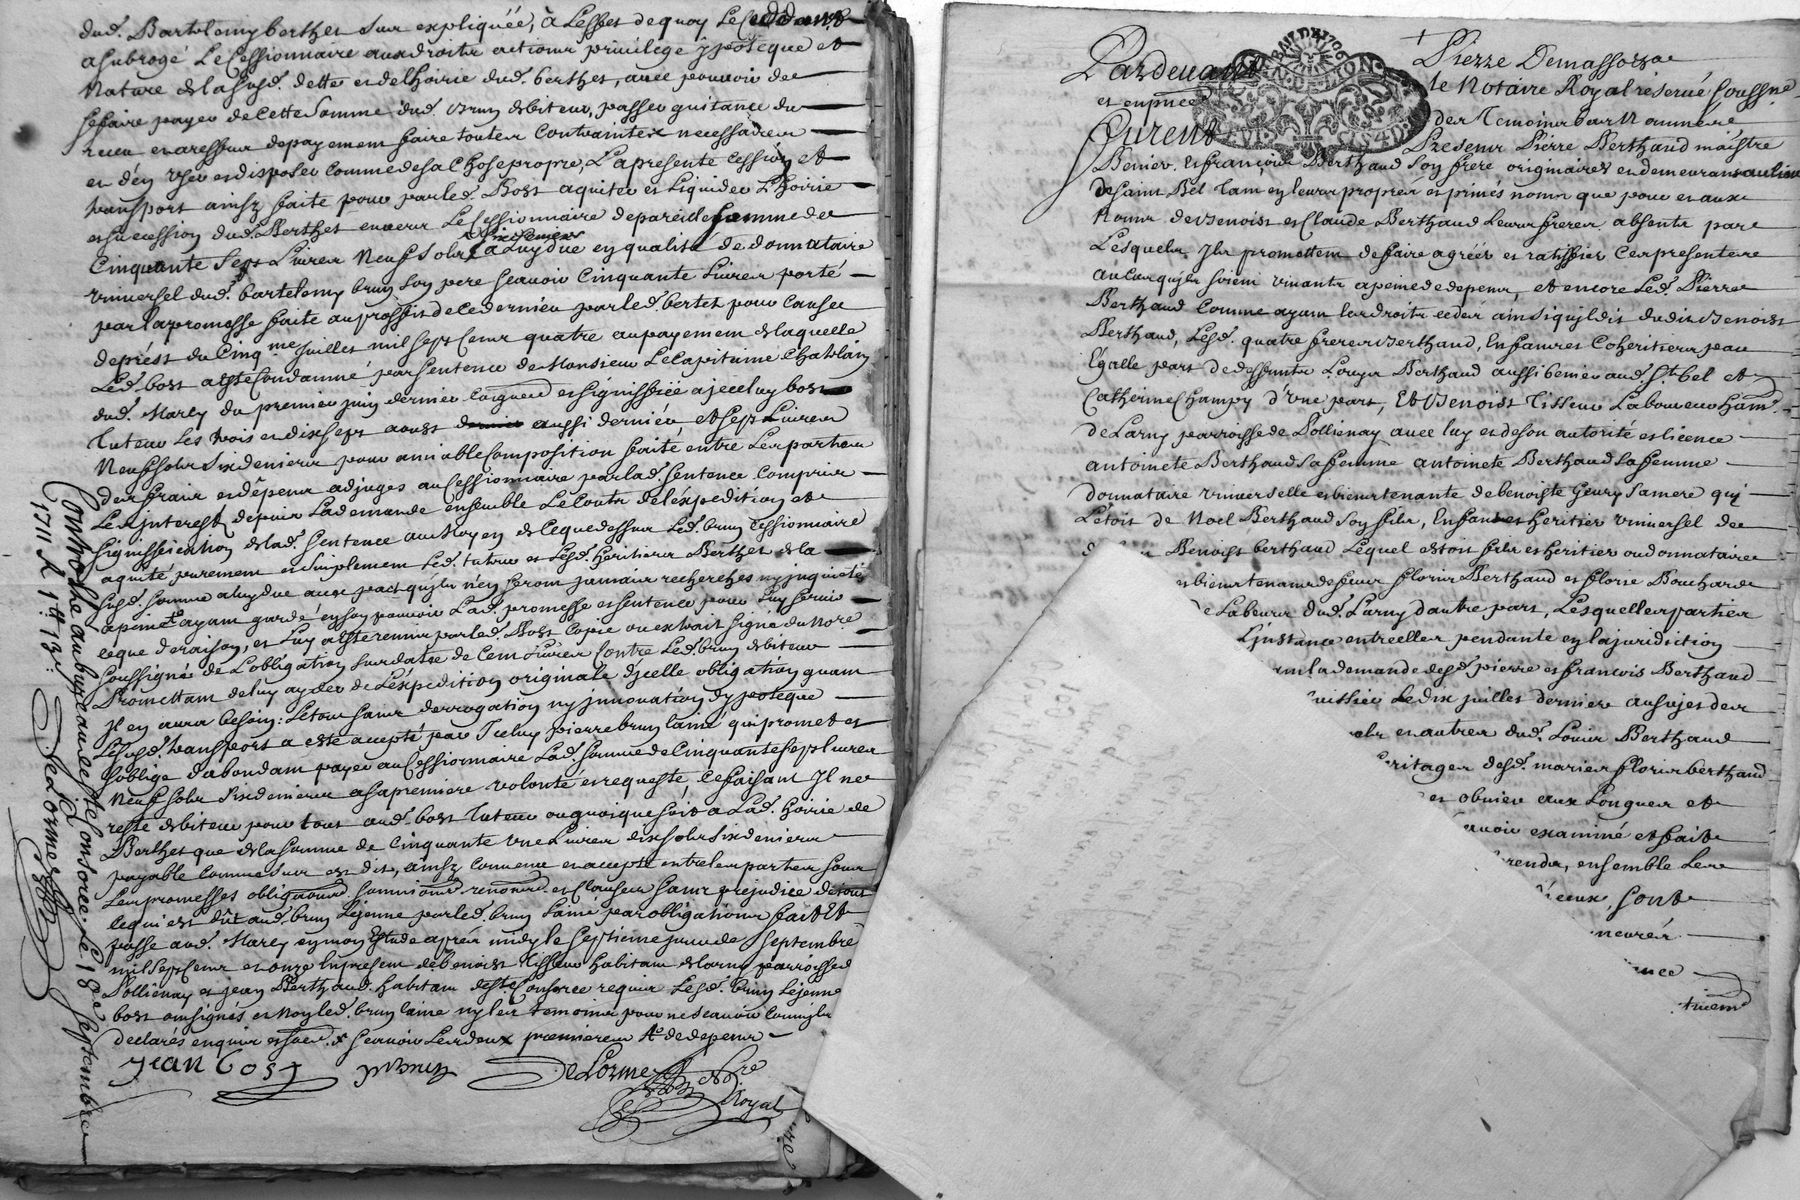 dud. Bartelemy berthet sur expliquée, a Leffet de quoy Le Ceddant
a subrogé Le Cessionnaire aux droits actions privilege ypoteque et
Nature de la susd. dette et de lhoirie dud. berthet, avec pouvoir de
se faire payer de cette somme dud. brun debiteur, passer quitance du
receu et a reffus de payement faire toutes Contraintes necessaires
et d'en user et disposer comme de sa Chose propre, La presente Cession et
transport ainsy faite pour par led. Bost aquiter et Liquider L'hoirie
et succession dud. Berthet envers Le Cessionnaire de pareille somme de
Cinquante Sept Livres Neuf sols six deniers a Luy due en qualité de donnataire
universel dud. bartelemy brun son pere scavoir Cinquante Livres porté
par la promesse faite au proffit de ce dernier par led. bertet pour Cause
de prest du Cinq.me juillet mil sept Cent quatre au payement de laquelle
Led. bost a esté Condamné par sentence de Monsieur Le Capitaine Chatelain
dud. Marcy du premier juin dernier signée et signiffiée a jceluy bost
tuteur les trois et dix sept aoust aussi dernier, et sept Livres
Neuf sols six deniers pour amiable Composition faite entre Les parties
des frais et dépens adjugés au Cessionnaire par lad. sentence Compris
Les interest depuis La demande ensemble Le Coutx de l'expedition et
signiffication de lad. sentence au Moyen de ce que dessus Led. brun Cessionnaire
aquité purement et simplement Led. tuteur et Lesd. heritiers Berthet de la
susd. somme a luy due avec pact qu'ils n'en seront jamais recherchés ny inquietés
a peine et ayant gardé en son pouvoir Lad. promesse et sentence pour Luy servir
ce que de raison, et Luy a esté remis par led. Bost Copie ou extrait signé du Not.re
soussigné de L'obligation surdatée de Cent Livres Contre Led. brun debiteur
Promettant de luy ayder de L'expedition originale d'jcelle obligation quant
Jl en aura besoin: Le tout sans derrogation ny jnnovation d'ypoteque
Lesusd. transport a esté accepté par Jceluy pierre brun laîné qui promet et
s'oblige d'abondant payer au Cessionnaire Lad. somme de Cinquante sept livres
Neuf sols six deniers a sa premiere volonté et requeste, Ce faisant Jl ne
reste debiteur pour tout aud. bost tuteur ou quoique soit a Lad. hoirie de
Berthet que de la somme de Cinquante une Livres dix sols six deniers
payable Comme sur est dit, ainsy Convenu et accepté entre les parties sous
Leurs promesses obligations soumissions renonc.ons et Clauses sans prejudice de tout
ce qui est dût aud. brun Lejeune par led. brun Lainé par obligations fait et
passé aud. Marcy en mon Estude apres midy le septieme jour de septembre
mil sept cent et onze en presence de Benoist Tisseur habitant de larny parroisse de
Pollienay et jean Berthaud habitant de s.te Consorce requis Lesd. brun Lejeune
bost ont signés et Non led. brun laine ny les temoins pour ne scavoir Comme ils
declarés enquis et somés scavoir Les deux premiers
Jean bost
p brun
DeLorme
No.re
Royal
Controllé au bureau de s.te Consorce le 18.e septembre
1711 R.
DeLorme
Pardevant
Pierre Demassoz
et en p.nce
le Notaire Royal réservé soussigné
des Temoins bas Nommés
Furent
Presents Pierre Berthaud maistre
Benier et françois Berthaud son frere originaires et demeurans au lieu
de Saint Bel tant en leurs propres et privés noms que pour et aux
Noms de Benoist et Claude Berthaud Leurs freres absents par
Lesquels Jls promettent de faire agréér et ratiffier Ces presentes
au cas qu'ils soient vivants a peine de depens, et encore Led. Pierre
Berthaud Comme ayant les droits cedés ainsi qu'jl dit dudit Benoist
Berthaud, Lesd. quatre freres Berthaud, Enfants et Coheritiers par
Egalle part de deffunts Louys Berthaud aussi benier aud. S.t bel et
Catherine Champy d'Une part, Et Benoist Tisseur Laboureur hab.t
de Larny parroisse de Pollienay avec luy et de son autorité et licence
antoinete Berthaud sa femme antoinete Berthaud sa femme
donnataire universelle et bientenante de benoiste Geury sa mere qui
L'étoit de Noel Berthaud son fils, Enfant et heritier universel de
Benoist berthaud Lequel estoit fils et heritier ou donnataire
et bientenant de feux floris Berthaud et florie Bouchard
de Labeur dud. Larny d'autre part, Lesquelles parties
L'instance entre elles pendante en la juridiction
la demande desd. pierre et françois Berthaud
Le dix juillet dernier au sujet des
et autres dud. Louis Berthaud
heritages desd. mariés floris berthaud
et obvier aux Longueur et
avoir examiné et fait
prendre, ensemble Les
sont
neurér